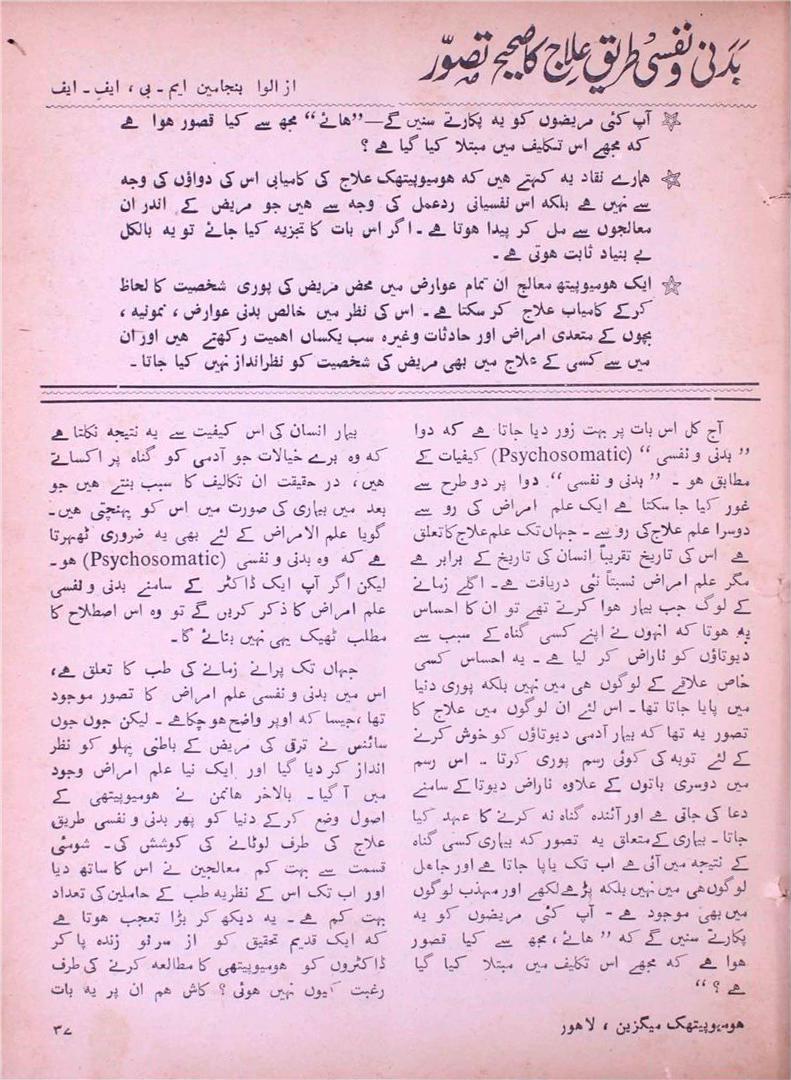 بدنی و نفسی طریق علاج کا صحیح تصوّر
از الوا بنجامین ایم - بی ، ایف - ایف
آپ کئی مریضوں کو یہ پکارتے سنیں گے—”ہائے“ مجھ سے کیا قصور ہوا ہے
کہ مجھے اس تکلیف میں مبتلا کیا گیا ہے ؟
ہمارے نقاد یہ کہتے ہیں کہ ہومیوپیتھک علاج کی کامیابی اس کی دواؤں کی وجہ
سے نہیں ہے بلکہ اس نفسیاتی ردعمل کی وجہ سے ہیں جو مریض کے اندر ان
معالجوں سے مل کر پیدا ہوتا ہے - اگر اس بات کا تجزیہ کیا جائے تو یہ بالکل
بے بنیاد ثابت ہوتی ہے -
ایک ہومیوپیتھ معالج ان تمام عوارض میں محض مریض کی پوری شخصیت کا لحاظ
کرکے کامیاب علاج کر سکتا ہے - اس کی نظر میں خالص بدنی عوارض ، نمونیہ ،
بچوں کے متعدی امراض اور حادثات وغیرہ سب یکساں اہمیت رکھتے ہیں اور ان
میں سے کسی کے علاج میں بھی مریض کی شخصیت کو نظرانداز نہیں کیا جاتا -
آج کل اس بات پر بہت زور دیا جاتا ہے کہ دوا
” بدنی و نفسی “ (Psychosomatic) کیفیات کے
مطابق ہو - ” بدنی و نفسی “ دوا پر دو طرح سے
غور کیا جا سکتا ہے ایک علم امراض کی رو سے
دوسرا علم علاج کی رو سے - جہاں تک علم علاج کا تعلق
ہے اس کی تاریخ تقریباً انسان کی تاریخ کے برابر ہے
مگر علم امراض نسبتاً نئی دریافت ہے - اگلے زمانے
کے لوگ جب بیمار ہوا کرتے تھے تو ان کا احساس
یہ ہوتا کہ انہوں نے اپنے کسی گناہ کے سبب سے
دیوتاؤں کو ناراض کر لیا ہے - یہ احساس کسی
خاص علاقے کے لوگوں ہی میں نہیں بلکہ پوری دنیا
میں پایا جاتا تھا - اس لئے ان لوگوں میں علاج کا
تصور یہ تھا کہ بیمار آدمی دیوتاؤں کو خوش کرنے
کے لئے توبہ کی کوئی رسم پوری کرتا - اس رسم
میں دوسری باتوں کے علاوہ ناراض دیوتا کے سامنے
دعا کی جاتی ہے اور آئندہ گناہ نہ کرنے کا عہد کیا
جاتا - بیماری کے متعلق یہ تصور کہ بیماری کسی گناہ
کے نتیجہ میں آئی ہے اب تک پایا جاتا ہے اور جاہل
لوگوں ہی میں نہیں بلکہ پڑھے لکھے اور مہذب لوگوں
میں بھی موجود ہے - آپ کئی مریضوں کو یہ
پکارتے سنیں گے کہ ” ہائے ، مجھ سے کیا قصور
ہوا ہے کہ مجھے اس تکلیف میں مبتلا کیا گیا
ہے ؟ “
بیمار انسان کی اس کیفیت سے یہ نتیجہ نکلتا ہے
کہ وہ برے خیالات جو آدمی کو گناہ پر اکساتے
ہیں ، در حقیقت ان تکالیف کا سبب بنتے ہیں جو
بعد میں بیماری کی صورت میں اس کو پہنچتی ہیں -
گویا علم الامراض کے لئے بھی یہ ضروری ٹھہرتا
ہے کہ وہ بدنی و نفسی (Psychosomatic) ہو -
لیکن اگر آپ ایک ڈاکٹر کے سامنے بدنی و نفسی
علم امراض کا ذکر کریں گے تو وہ اس اصطلاح کا
مطلب ٹھیک یہی نہیں بتائے گا -
جہاں تک پرانے زمانے کی طب کا تعلق ہے ،
اس میں بدنی و نفسی علم امراض کا تصور موجود
تھا ، جیسا کہ اوپر واضح ہو چکا ہے - لیکن جوں جوں
سائنس نے ترقی کی مریض کے باطنی پہلو کو نظر
انداز کر دیا گیا اور ایک نیا علم امراض وجود
میں آ گیا - بالآخر ہانمن نے ہومیوپیتھی کے
اصول وضع کرکے دنیا کو پھر بدنی و نفسی طریق
علاج کی طرف لوٹانے کی کوشش کی - شومئی
قسمت سے بہت کم معالجین نے اس کا ساتھ دیا
اور اب تک اس کے نظریہ طب کے حاملین کی تعداد
بہت کم ہے - یہ دیکھ کر بڑا تعجب ہوتا ہے
کہ ایک قدیم تحقیق کو از سر نو زندہ پا کر
ڈاکٹروں کو ہومیوپیتھی کا مطالعہ کرنے کی طرف
رغبت کیوں نہیں ہوئی ؟ کاش ہم ان پر یہ بات
ہومیوپیتھک میگزین ، لاہور
۳۷